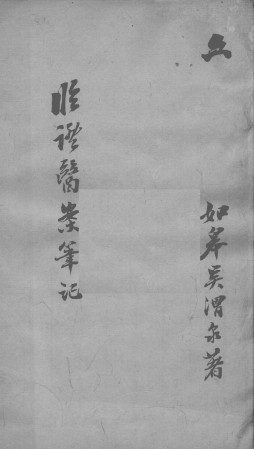 如皋吳渭泉著
臨證醫案筆記